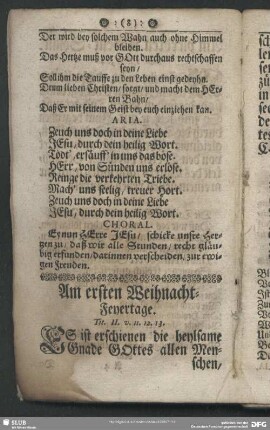 : (8) :
Der wird bey solchem Wahn auch ohne Himmel
bleiben.
Das Hertze muß vor GOtt durchaus rechtschaffen
seyn/
Soll ihm die Tauffe zu den Leben einst gedeyhn.
Drum lieben Christen/ sorgt/ und macht dem HEr-
ren Bahn/
Daß Er mit seinem Geist bey euch einziehen kan.
ARIA.
Zeuch uns doch in deine Liebe
JEsu/ durch dein heilig Wort.
Tödt' ersäuff' in uns das böse.
HErr, von Sünden uns erlöse.
Reinge die verkehrten Triebe.
Mach' uns seelig/ treuer Hort.
Zeuch uns doch in deine Liebe
JEsu/ durch dein heilig Wort.
CHORAL.
Ey nun HErre JEsu/ schicke unsre Her-
tzen zu/ daß wir alle Stunden/ recht gläu-
big erfunden/ darinnen verscheiden, zur ewi-
gen Freuden.
Am ersten Weihnacht-
Feyertage.
Tit. II. v. 11. 12. 13.
ES ist erschienen die heylsame
Gnade GOttes allen Men-
schen/
SLUB
DFG